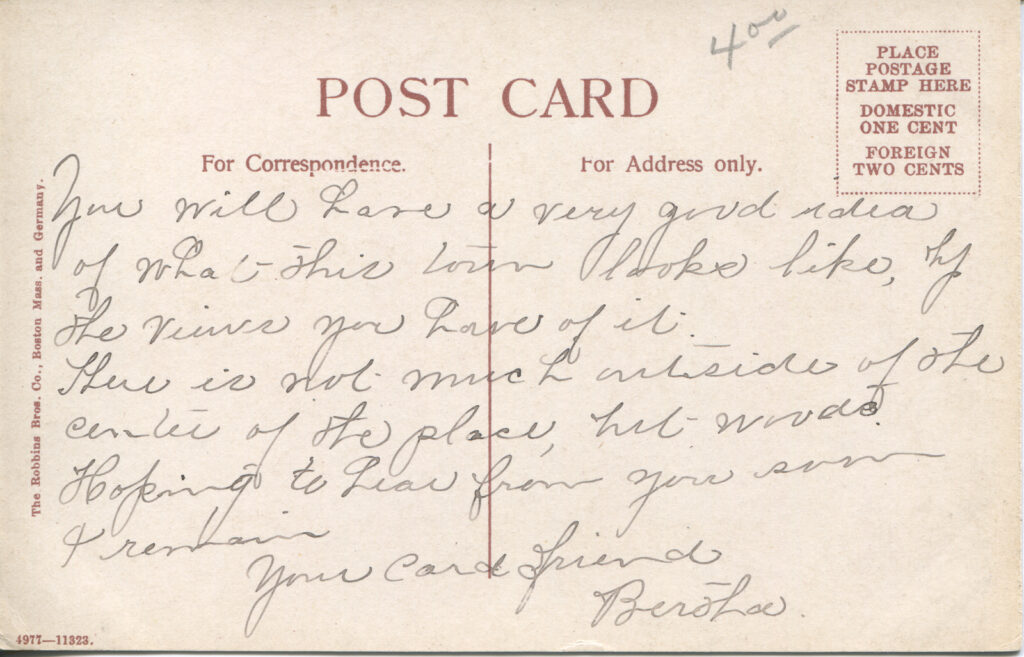 4 00
POST CARD
PLACE
POSTAGE
STAMP HERE
DOMESTIC
ONE CENT
FOREIGN
TWO CENTS
For Correspondence.
For Address only.
You will have a very good idea
of what this town looks like, by
the views you have of it.
There is not much outside of the
center of the place, but woods.
Hoping to hear from you soon
I remain
Your card friend
Bertha.
The Robbins Bros. Co., Boston Mass. and Germany.
4977—11323.